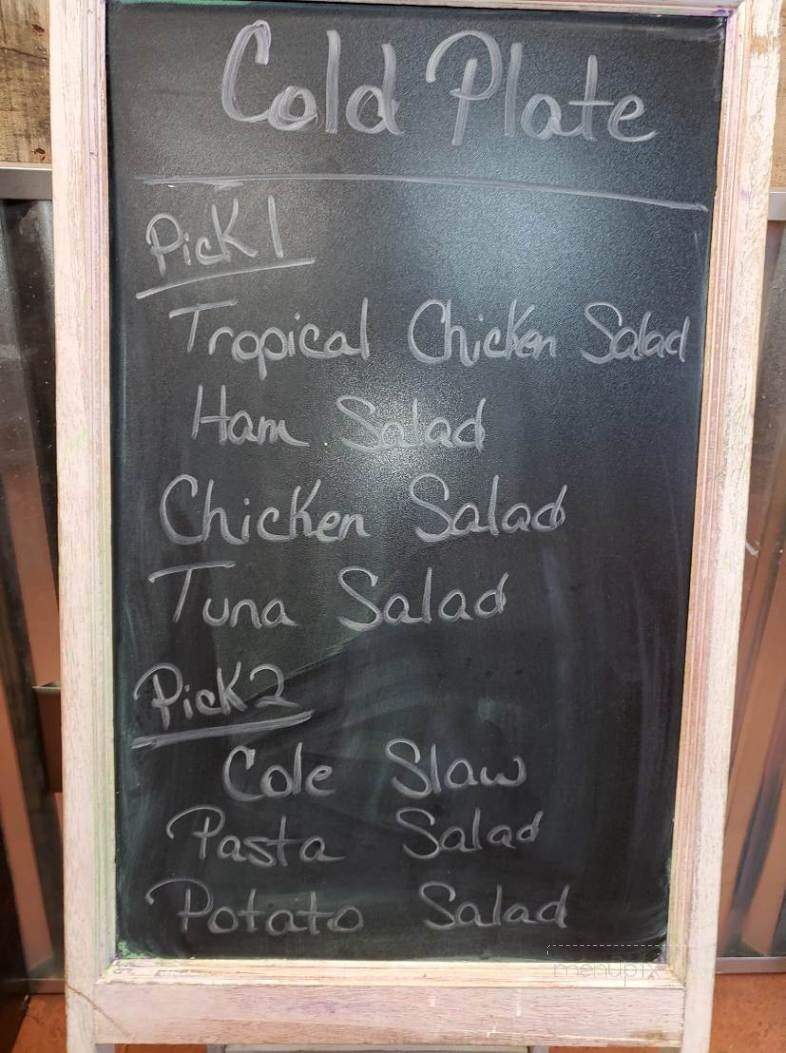 Cold Plate
Pick 1
Tropical Chicken Salad
Ham Salad
Chicken Salad
Tuna Salad
Pick 2
Cole Slaw
Pasta Salad
Potato Salad
menupix